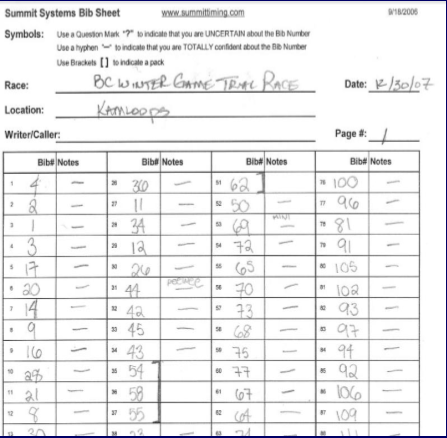 Summit Systems Bib Sheet www.summittiming.com 9/18/2006
Symbols: Use a Question Mark "?" to indicate that you are UNCERTAIN about the Bib Number
Use a hyphen "-" to indicate that you are TOTALLY confident about the Bib Number
Use Brackets [ ] to indicate a pack
Race: BC WINTER GAME TRIAL RACE Date: 12/30/07
Location: KAMLOOPS
Writer/Caller: Page #: 1
Bib# Notes Bib# Notes Bib# Notes Bib# Notes
1 4 — 26 36 — 51 62 ] 76 100 —
2 2 — 27 11 — 52 50 — 77 96 —
3 1 — 28 34 — 53 69 — 78 81 —
4 3 — 29 12 — 54 72 — 79 91 —
5 17 — 30 26 — 55 65 — 80 105 —
6 20 — 31 44 56 70 — 81 102 —
7 14 — 32 42 — 57 73 — 82 93 —
8 9 — 33 45 — 58 68 — 83 97 —
9 16 — 34 43 — 59 75 — 84 94 —
10 28 — 35 54 60 77 — 85 92 —
11 21 — 36 58 61 67 — 86 106 —
12 8 — 37 55 62 64 — 87 109 —
30 — 23 — 74 111 —